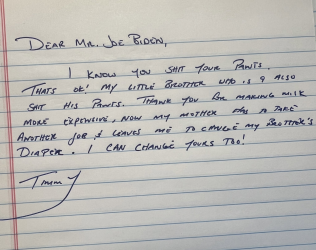 Dear Mr. Joe Biden,
I know you shit your pants.
Thats ok! My little brother who is 9 also
shit his pants. Thank you for making milk
more expensive, now my mother has to take
another job & leaves me to change my brother's
diaper. I can change yours too!
Timmy